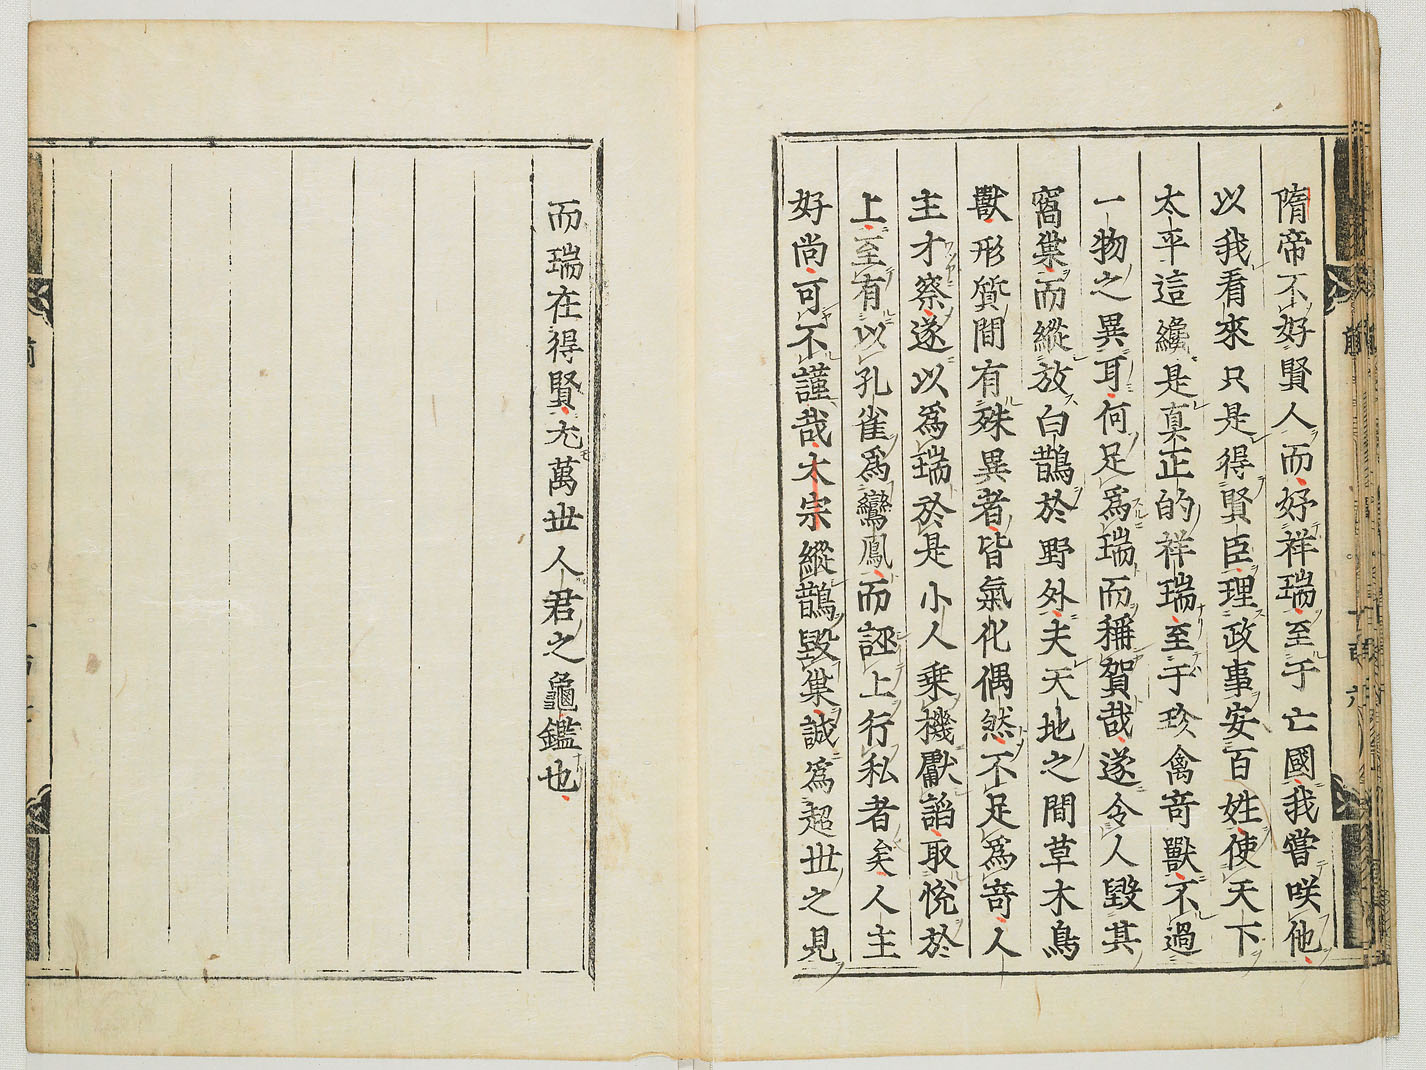 隋帝不好賢人而好祥瑞至于亡國我嘗咲他
以我看來只是得賢臣理政事安百姓使天下
太平這纔是真正的祥瑞至于珍禽奇獸不過
一物之異耳何足爲瑞而稱賀哉遂令人毀其
窩巢而縱放白鵲於野外夫天地之間草木鳥
獸形質間有殊異者皆氣化偶然不足爲奇人
主才察遂以爲瑞於是小人乗機獻謟取悅於
上至有以孔雀爲鸞鳳而誣上行私者矣人主
好尚可不謹哉太宗縱鵲毀巢誠爲超世之見
而瑞在得賢尤萬世人君之龜鑑也